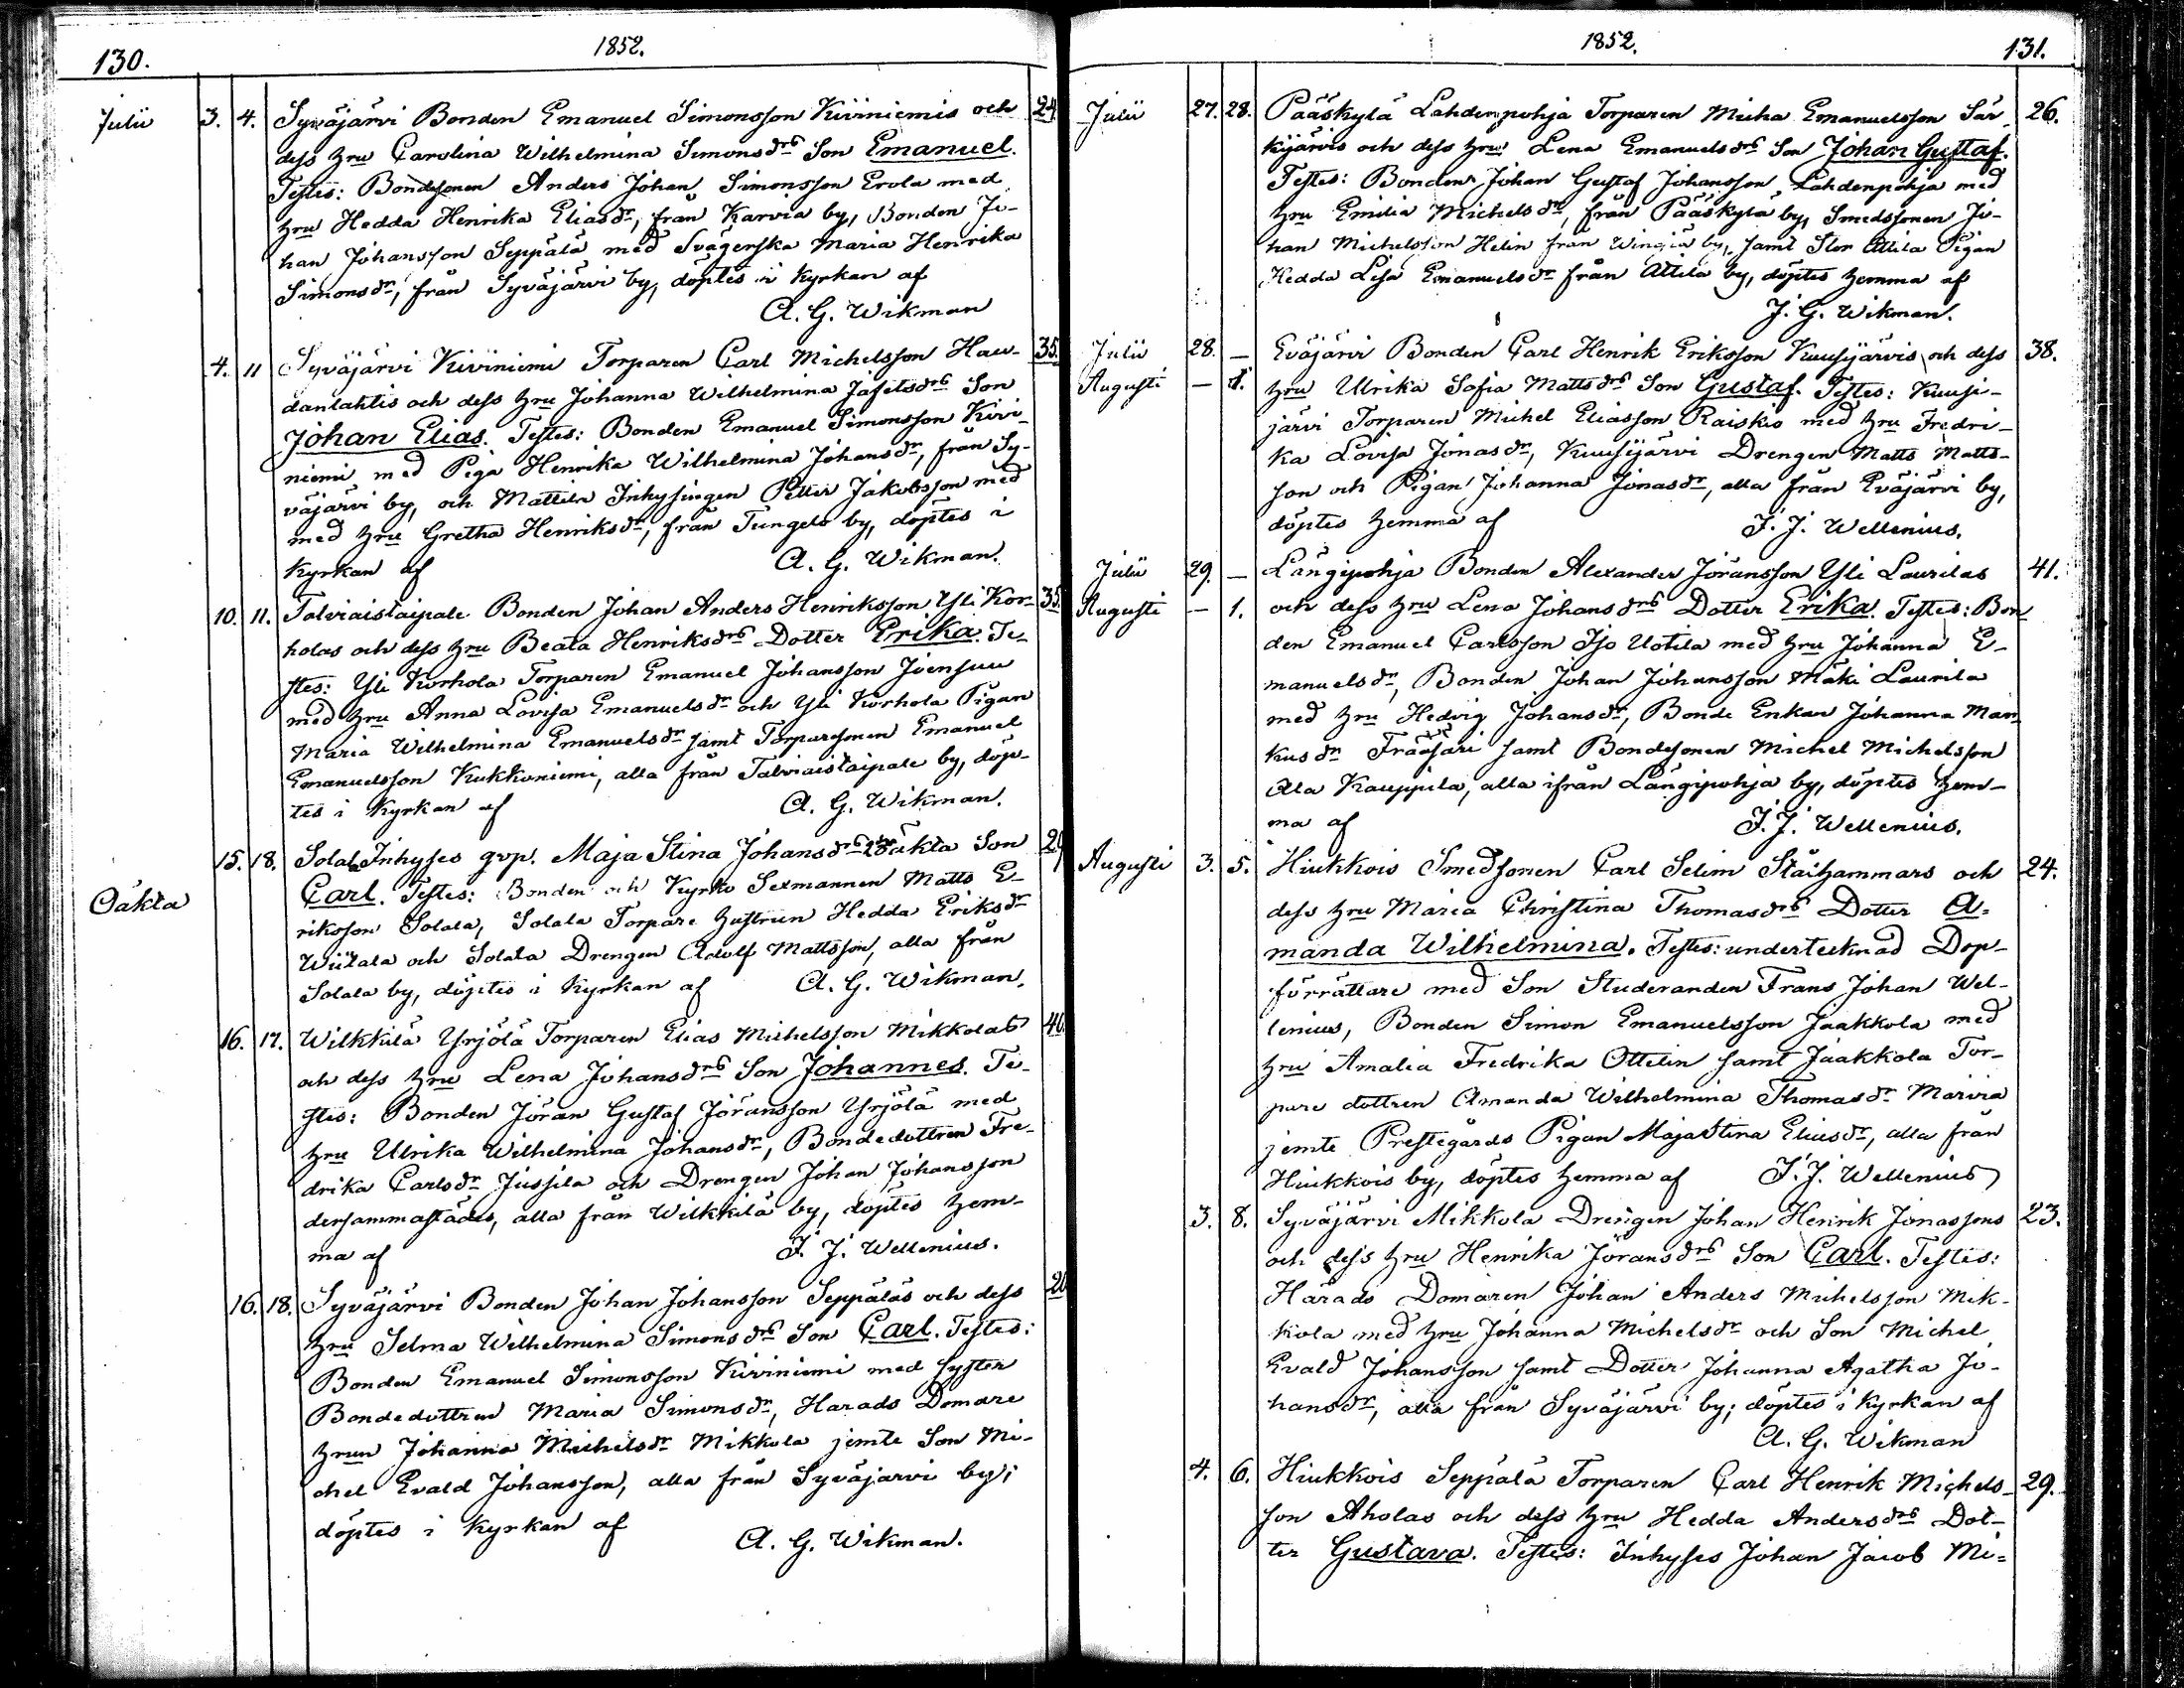 130.
1852.
Julii 3. 4. Syväjärvi Bonden Emanuel Simonsson Kiviniemis och 24
dess hru Carolina Wilhelmina Simonsdrs Son Emanuel.
Testes: Bondesonen Anders Johan Simonsson Erola med
hru Hedda Henrika Eliasdr, från Karvia by, Bonden Jo-
han Johansson Seppälä med Svägerska Maria Henrika
Simonsdr, från Syväjärvi by, döptes i Kyrkan af
A. G. Wikman
4. 11 Syväjärvi Kiviniemi Torparen Carl Michelsson Hau- 35.
danlahtis och dess hru Johanna Wilhelmina Jafetsdrs Son
Johan Elias. Testes: Bonden Emanuel Simonsson Kivi-
niemi med Piga Henrika Wilhelmina Johansdr, från Sy-
väjärvi by, och Mattila Inhysingen Petter Jakobsson med
med hru Gretha Henriksdr, från Tungelo by, döptes i
Kyrkan af A. G. Wikman.
10. 11. Talviaistaipale Bonden Johan Anders Henriksson Yli Kor- 35
holas och dess hru Beata Henriksdrs Dotter Erika. Te-
stes: Yli Korhola Torparen Emanuel Johansson Joensuu
med hru Anna Lovisa Emanuelsdr och Yli Korhola Pigan
Maria Wilhelmina Emanuelsdr samt Torparesonen Emanuel
Emanuelsson Kukkoniemi, alla från Talviaistaipale by, döp-
tes i Kyrkan af A. G. Wikman.
15. 18. Solala Inhyses qvp. Maja Stina Johansdrs oäkta Son 29
Oäkta Carl. Testes: Bonden och Kyrko Sexmannen Matts E-
riksson Solala, Solala Torpare hustrun Hedda Eriksdr
Wiitala och Solala Drengen Adolf Mattsson, alla från
Solala by, döptes i Kyrkan af A. G. Wikman.
16. 17. Wilkkilä Yrjölä Torparen Elias Michelsson Mikkolas 40.
och dess hru Lena Johansdrs Son Johannes. Te-
stes: Bonden Jöran Gustaf Jöransson Yrjölä med
hru Ulrika Wilhelmina Johansdr, Bondedottren Fre-
drika Carlsdr Jussila och Drengen Johan Johansson
dersammastädes, alla från Wilkkilä by, döptes hem-
ma af F. J. Wellenius.
16. 18. Syväjärvi Bonden Johan Johansson Seppäläs och dess 20
hru Selma Wilhelmina Simonsdrs Son Carl. Testes:
Bonden Emanuel Simonsson Kiviniemi med syster
Bondedottren Maria Simonsdr, Harads Domare
hrun Johanna Michelsdr Mikkola jemte Son Mi-
chel Evald Johansson, alla från Syväjarvi by;
döptes i Kyrkan af
A. G. Wikman.
1852.
131.
Julii 27. 28. Pääskylä Lahdenpohja Torparen Micha Emanuelsson Sär- 26.
kijärvis och dess hru Lena Emanuelsdrs Son Johan Gustaf.
Testes: Bonden Johan Gustaf Johansson, Lahdenpohja med
hru Emilia Michelsdr, från Pääskylä by, Smedssonen Jo-
han Michelsson Helin från by, samt Stor Attila Pigan
Hedda Lisa Emanuelsdr från Attila by, döptes hemma af
J. G. Wikman.
Julii 28. — Eväjärvi Bonden Carl Henrik Eriksson Kuusijärvis och dess 38.
Augusti — 1. hru Ulrika Sofia Mattsdrs Son Gustaf. Testes: Kuusi-
järvi Torparen Michel Eliasson Raiskio med hru Fredri-
ka Lovisa Jonasdr, Kuusijärvi Drengen Matts Matts-
son och Pigan Johanna Jonasdr, alla från Eväjärvi by,
döptes hemma af F. J. Wellenius.
Julii 29. — Längipohja Bonden Alexander Jöransson Yli Laurilas 41.
Augusti — 1. och dess hru Lena Johansdrs Dotter Erika. Testes: Bon
den Emanuel Carlsson Iso Uotila med hru Johanna E-
manuelsdr, Bonden Johan Johansson Mäki Laurila
med hru Hedvig Johansdr, Bonde Enkan Johanna Mar
kusdr samt Bondesonen Michel Michelsson
Ala Kauppila, alla ifrån Längipohja by, döptes hem-
ma af F. J. Wellenius.
Augusti 3. 5. Hiukkois Smedsonen Carl Selim Stålhammars och 24.
dess hru Maria Christina Thomasdrs Dotter A-
manda Wilhelmina. Testes: undertecknad Dop-
förrättare med Son Studeranden Frans Johan Wel-
lenius, Bonden Simon Emanuelsson Jaakkola med
hru Amalia Fredrika Ottelin samt Jaakkola Tor-
pare dottren Amanda Wilhelmina Thomasdr Marvia
jemte Prestegårds Pigan Majastina Eliasdr, alla från
Hiukkois by, döptes hemma af F. J. Wellenius
3. 8. Syväjärvi Mikkola Drengen Johan Henrik Jonassons 23.
och dess hru Henrika Jöransdrs Son Carl. Testes:
Härads Domaren Johan Anders Michelsson Mik-
kola med hru Johanna Michelsdr och Son Michel
Evald Johansson samt Dotter Johanna Agatha Jo-
hansdr, alla från Syväjärvi by; döptes i Kyrkan af
A. G. Wikman
4. 6. Hiukkois Seppälä Torparen Carl Henrik Michels- 29.
son Aholas och dess hru Hedda Andersdrs Dot-
ter Gustava. Testes: Inhyses Johan Jacob Mi-